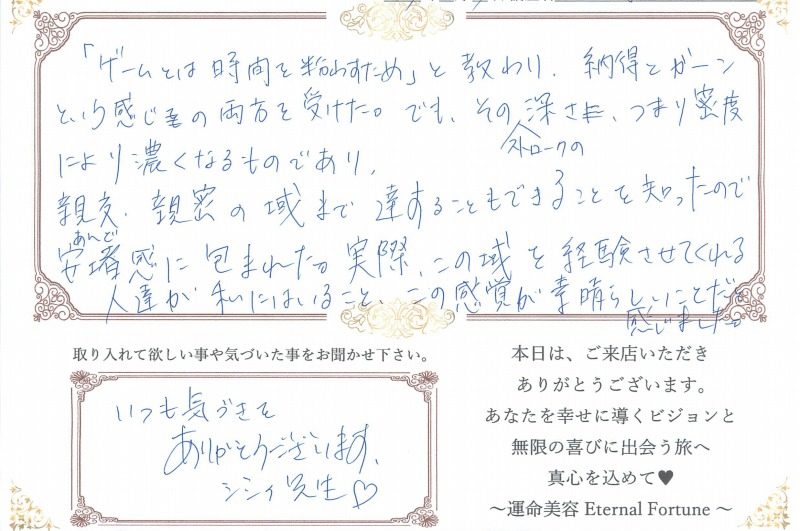 「ゲームとは時間を紛わすため」と教わり、納得とガーン
という感じの両方を受けた。でも、その深さ、つまり密度
ストロークの
により濃くなるものであり、
親交、親密の域まで達することもできることを知ったので
あんど
安堵感に包まれた。実際、この域を経験させてくれる
人達が私にはいること、この感覚が素晴らしいことだと
感じました。
取り入れて欲しい事や気づいた事をお聞かせ下さい。
いつも気づきを
ありがとうございます、
シシィ先生♡
本日は、ご来店いただき
ありがとうございます。
あなたを幸せに導くビジョンと
無限の喜びに出会う旅へ
真心を込めて♥
～運命美容 Eternal Fortune ～